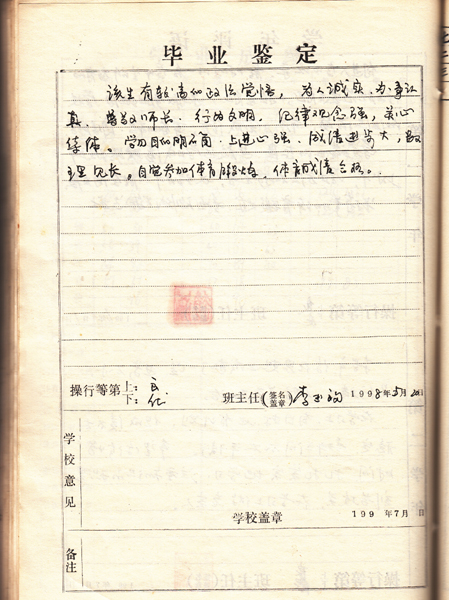 毕业鉴定
该生有较高的政治觉悟，为人诚实、办事认
真、尊敬师长、行为文明，纪律观念强，关心
集体。学习目的明确，上进心强、成绩进步大，数
理见长。自觉参加体育锻炼，体育成绩合格。
操行等第 上：良
下：优
班主任(签名盖章) 李 1998年5月20日
学校意见
学校盖章 199 年7月 日
备注